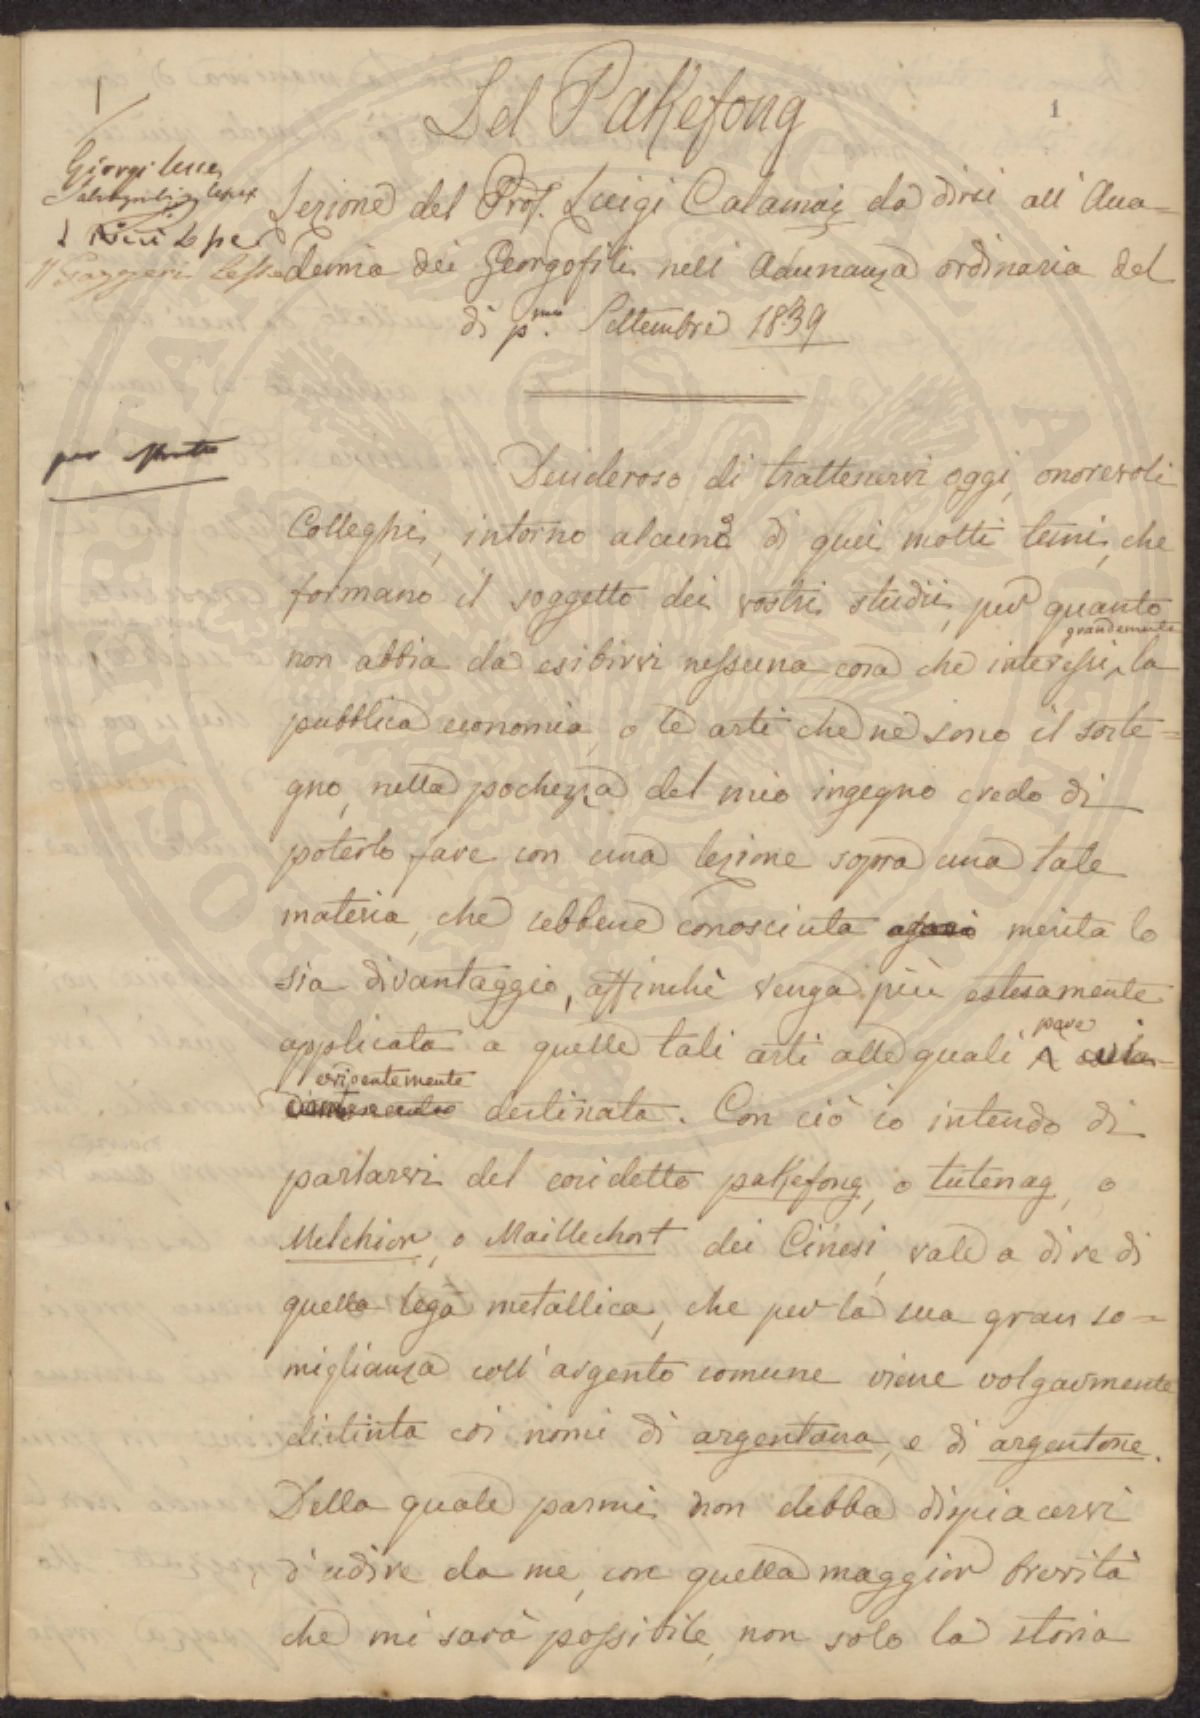 Del Pakefong
1
1
Giorgi lesse
Lezione del Prof. Luigi Calamai da dirsi all' Acca=
demia dei Georgofili nell' Adunanza ordinaria del
dì p.mo Settembre 1839
per estratto
Desideroso di trattenervi oggi, onorevoli
Colleghi, intorno alcuno di quei molti temi, che
formano il soggetto dei vostri studii, per quanto
grandemente
non abbia da esibirvi nessuna cosa che interessi la
pubblica economia, o le arti che ne sono il soste=
gno, nella pochezza del mio ingegno credo di
poterlo fare con una lezione sopra una tale
materia, che sebbene conosciuta assai merita lo
sia di vantaggio, affinchè venga più estesamente
pare
applicata a quelle tali arti alle quali è evi=
evidentemente
dentemente destinata. Con ciò io intendo di
parlarvi del così detto pakefong, o tutenag, o
Melchior, o Maillechort dei Cinesi, vale a dire di
quella lega metallica, che per la sua gran so=
miglianza coll' argento comune viene volgarmente
distinta coi nomi di argentana, e di argentone.
Della quale parmi non debba dispiacervi
d'udire da me, con quella maggior brevità
che mi sarà possibile, non solo la storia